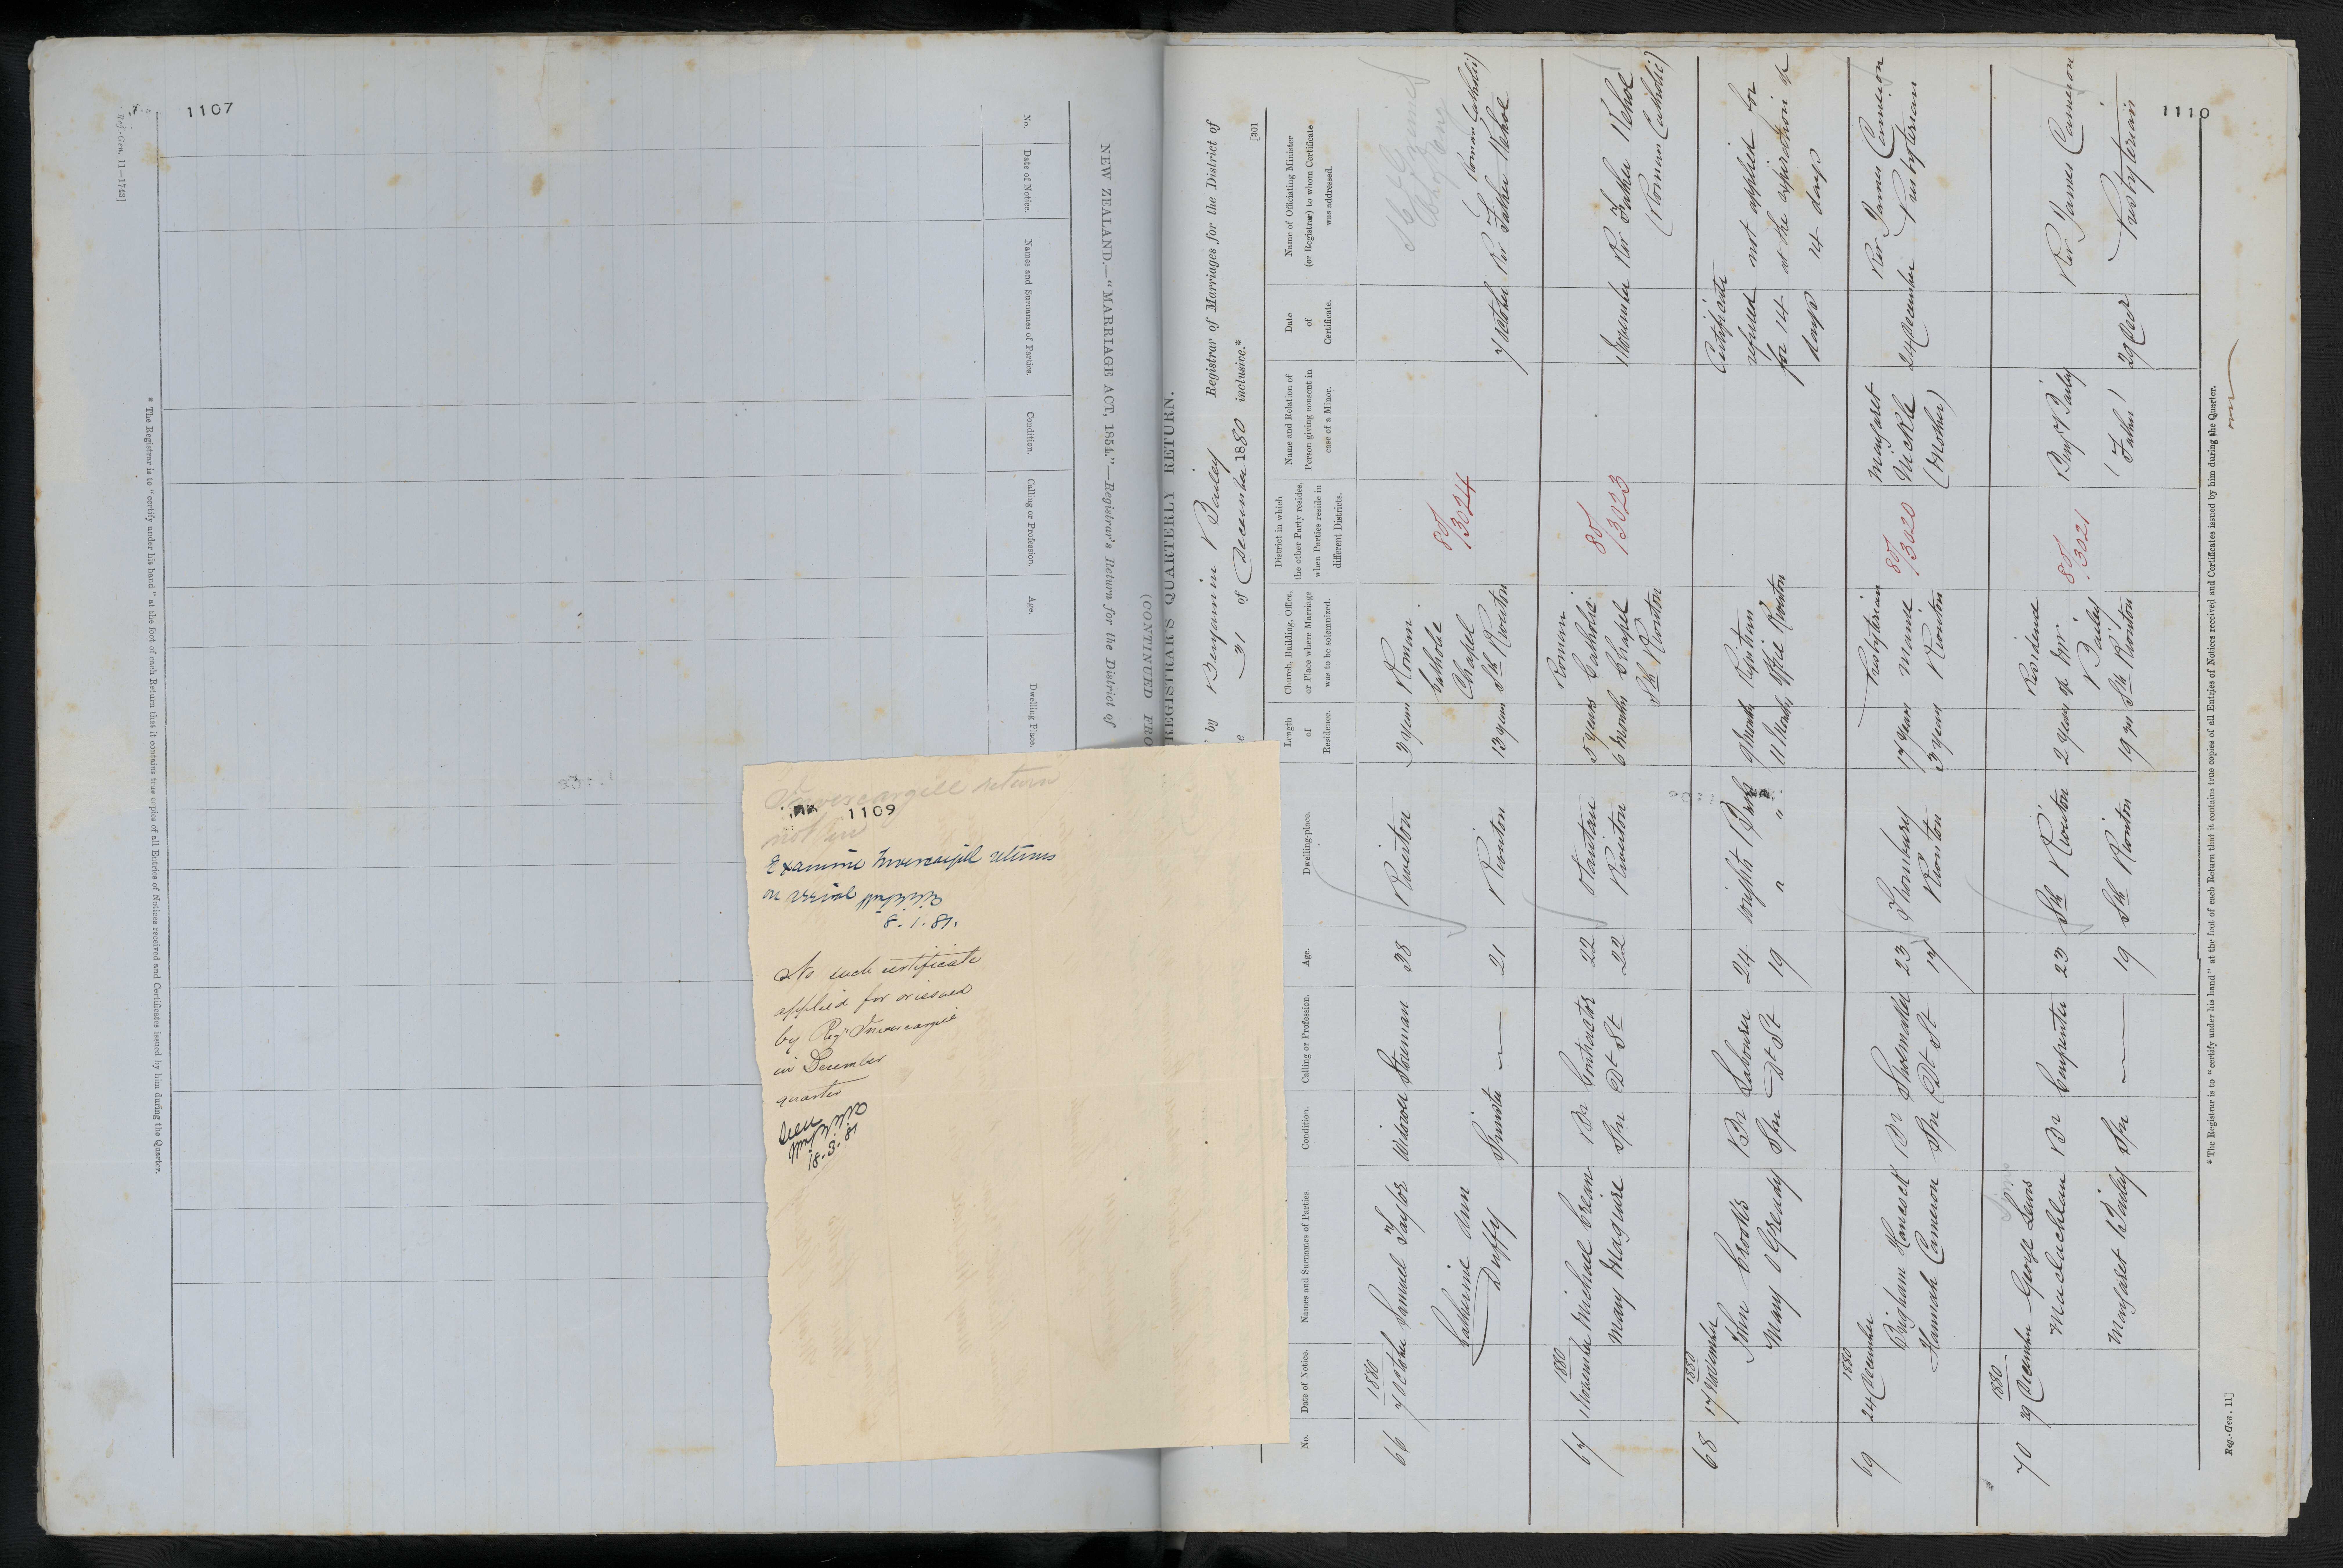 1107
Reg.-Gen. 11—1743]
NEW ZEALAND.—"MARRIAGE ACT, 1854."—Registrar's Return for the District of
(CONTINUED FRO
No.
Date of Notice.
Names and Surnames of Parties.
Condition.
Calling or Profession.
Age.
Dwelling Place.
* The Registrar is to "certify under his hand" at the foot of each Return that it contains true copies of all Entries of Notices received and Certificates issued by him during the Quarter.
Invercargill return
not in
1109
Examine Invercargill returns
on arrival
8.1.81.
No such certificate
applied for or issued
by Regr Invercargill
in December
quarter
Seen
18.3.81
1110
REGISTRAR'S QUARTERLY RETURN.
by Benjamin Bailey Registrar of Marriages for the District of
31 of December 1880 inclusive.*
[301
No.
Date of Notice.
Names and Surnames of Parties.
Condition.
Calling or Profession.
Age.
Dwelling-place.
Length of Residence.
Church, Building, Office, or Place where Marriage was to be solemnized.
District in which the other Party resides, when Parties reside in different Districts.
Name and Relation of Person giving consent in case of a Minor.
Date of Certificate.
Name of Officiating Minister (or Registrar) to whom Certificate was addressed.
66 1880 7 October Samuel Taylor Widower Storeman 38 Riverton 3 years Roman Catholic Chapel Sth Riverton
80/3024
Catherine Ann Duffy Spinster — 21 Riverton 13 years 7 October Rev Father Kehoe (Roman Catholic)
67 1880 1 November Michael Brean Br Contractor 22 Otautau 5 years Roman Catholic Chapel Sth Riverton 1 November Rev Father Kehoe (Roman Catholic)
80/3023
Mary Maguire Spr Dt St 22 Riverton 6 months
68 1880 17 November John Crooks Br Labourer 24 Wrights Bush 9 Months Registrars Office Riverton
Mary O'Gready Spr Dt St 19 " " 11 Months
Certificate refused for 14 days
not applied for at the expiration of 14 days
69 1880 24 December Brigham Hansel Br Shoemaker 23 Thornbury 17 years Presbyterian Manse Riverton
80/3020
Hannah Cameron Spr Dt St 17 Riverton 3 years
Margaret Mickle (Mother) 24 December Rev James Cameron Presbyterian
70 1880 29 December George Lewis Maclachlan Br Carpenter 23 Sth Riverton 2 years Residence of Mr. Bailey Sth Riverton
80/3021
Margaret Bailey Spr — 19 Sth Riverton 19 yrs
Benj Bailey (Father) 29 Decr Rev James Cameron Presbyterian
* The Registrar is to "certify under his hand" at the foot of each Return that it contains true copies of all Entries of Notices received and Certificates issued by him during the Quarter.
Reg.-Gen. 11]